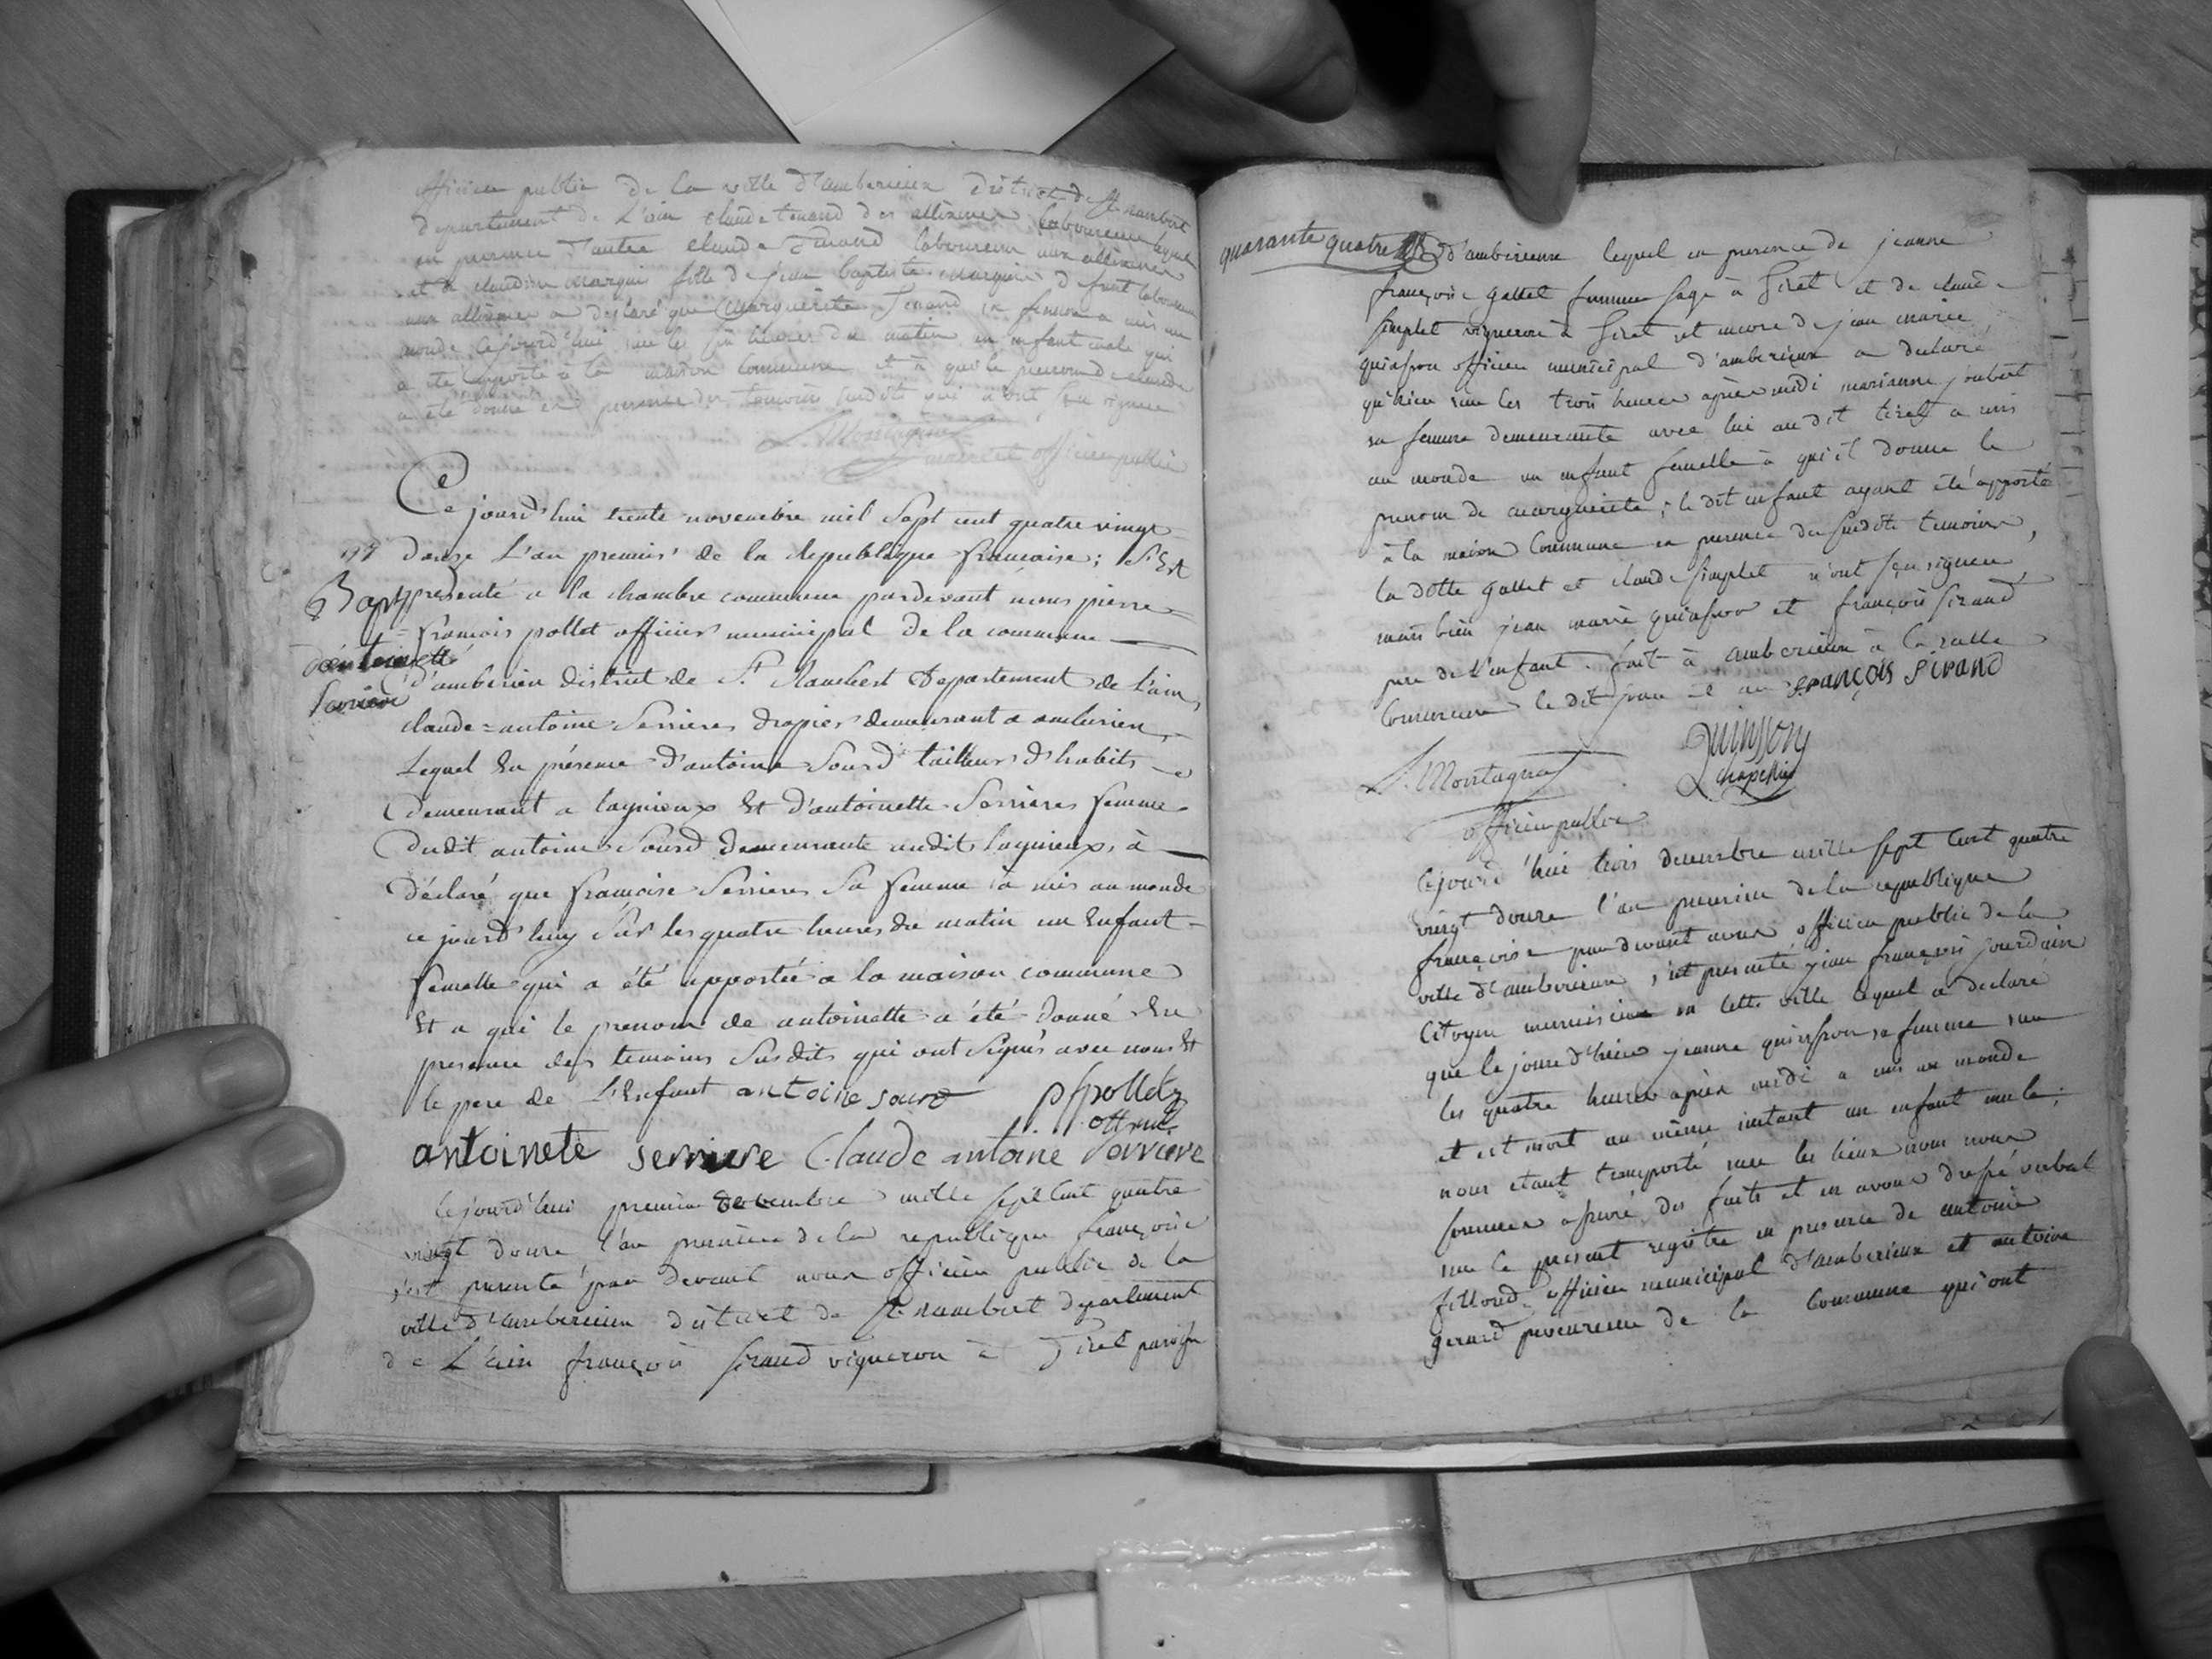 officier public de la ville d'amberieux district de St rambert
departement de L'ain claude tenand des allimes laboureur lequel
en presence d'autre claude tenand laboureur aux allimes
et de claudine marquis fille de jean baptiste marquis defunt laboureur
aux allimes a declaré que marguerite tenand sa femme a mis au
monde cejourd'hui sur les six heures du matin un enfant male qui
a été apporté à la maison commune et à qui le prenom de claude
a été donné en presence des temoins susdits qui n'ont sçu signer
Montagnat
officier public
Ce jourd'hui trente novembre mil sept cent quatre vingt
douze L'an premier de la republique francaise; s'Est
Bapt présenté a la chambre commune pardevant nous pierre
d'antoinette francois pollet officier municipal de la commune
Serriere d'amberieu district de St Rambert departement de L'ain,
claude=antoine Serrieres drapier demeurant a amberieu,
Lequel En présence d'antoine Sourd tailleur d'habits
demeurant a lagnieux Et d'antoinette Serrieres femme
Dudit antoine Sourd demeurante audit lagnieux, à
déclaré que francoise Serrieres Sa femme a mis au monde
ce jourd'huy Sur les quatre heures du matin un Enfant
femelle qui a été apportée a la maison commune
Et a qui le prenom de antoinette a été donné En
presence des temoins Susdits qui ont Signés avec nous Et
le pere de L'Enfant antoine sourd pfpollet
off mul
antoinete serriere Claude antoine Serriere
Cejourd'hui premier decembre mille sept cent quatre
vingt douze l'an premier de la republique françoise
s'est presenté par devant nous officier public de la
ville d'amberieux district de St rambert departement
de L'ain françois sirand vigneron à Tiret paroisse
quarante quatre d'amberieux lequel en presence de jeanne
françoise gallet femme sage à Tiret et de claude
simplet vigneron à Tiret et encore de jean marie
quinson officier municipal d'amberieux a declaré
qu'hier sur les trois heures après midi marianne joubert
sa femme demeurante avec lui audit tiret a mis
au monde un enfant femelle à qui il donne le
prenom de marguerite; le dit enfant ayant été apporté
à la maison commune en presence des susdits temoins,
la ditte gallet et claude simplet n'ont sçu signer,
mais bien jean marie quinson et françois sirand
pere de l'enfant. fait à amberieux à la salle
commune le dit jour et an françois sirand
Montagnat Quinson
Chapellier
officier public
Cejourd'hui trois decembre mille sept cent quatre
vingt douze l'an premier de la republique
françoise par devant nous officier public de la
ville d'amberieux, s'est presenté jean françois jourdain
citoyen en cette ville lequel a declaré
que le jour d'hier jeanne quinson sa femme sur
les quatre heures après midi a mis au monde
et est mort au même instant un enfant male;
nous etant transporté sur les lieux nous nous
sommes assuré des faits et en avons dressé verbal
sur le present registre en presence de antoine
fillond officier municipal d'amberieux et antoine
gerard procureur de la commune qui ont